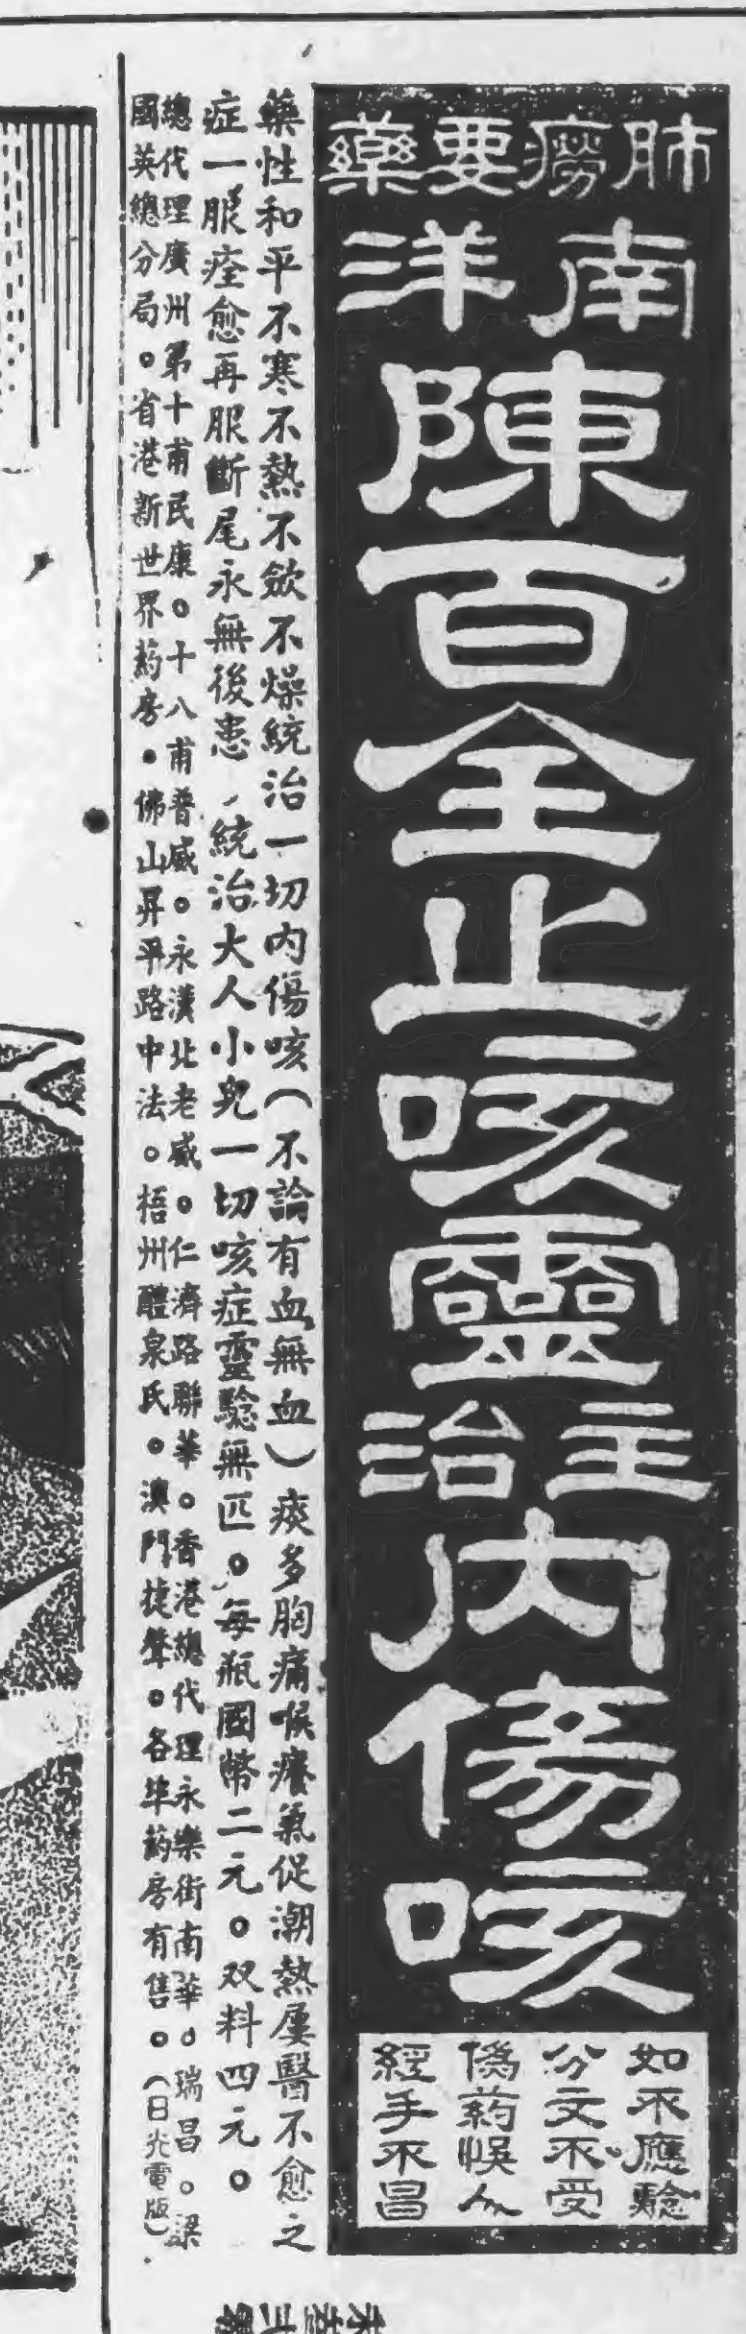 肺癆要藥
南洋
陳百全止咳靈
主治
內傷咳
如不應驗
分文不受
偽药悞人
經手不昌
藥性和平不寒不熱不斂不燥統治一切內傷咳(不論有血無血)痰多胸痛喉癢氣促潮熱屢醫不愈之
症一服痊愈再服斷尾永無後患、統治大人小児一切咳症靈驗無匹。每瓶國幣二元。双料四元。
總代理廣州第十甫民康。十八甫普威。永漢北老威。仁濟路聯華。香港總代理永樂街南華。瑞昌。梁
國英總分局。省港新世界药房。佛山昇平路中法。梧州醴泉氏。澳門捷聲。各埠药房有售。(日光電版)